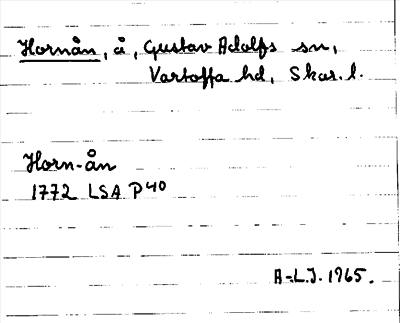 Hornån, å, Gustav Adolfs sn,
Vartofta hd, Skar. l.
Horn-ån
1772 LSA P40
A-L.J. 1965.